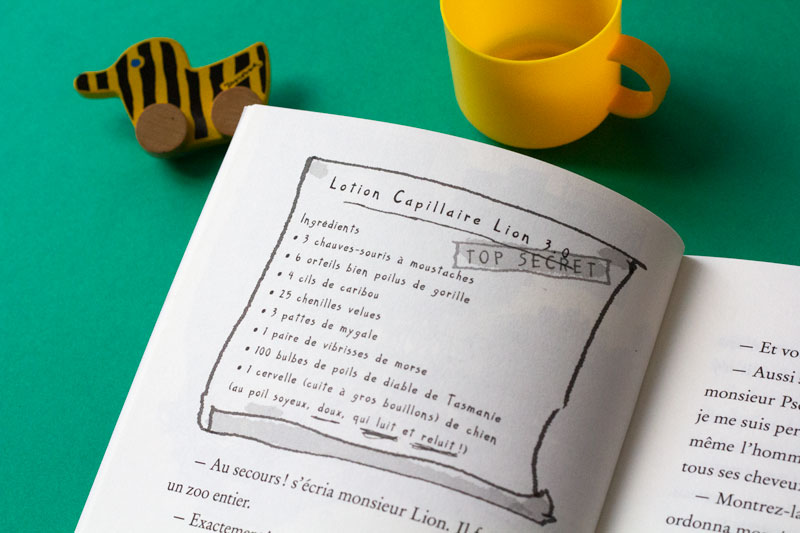 Lotion Capillaire Lion 3.0
TOP SECRET
Ingrédients
• 3 chauves-souris à moustaches
• 6 orteils bien poilus de gorille
• 4 cils de caribou
• 25 chenilles velues
• 3 pattes de mygale
• 1 paire de vibrisses de morse
• 100 bulbes de poils de diable de Tasmanie
• 1 cervelle (cuite à gros bouillons) de chien
(au poil soyeux, doux, qui luit et reluit !)
— Au secours ! s'écria monsieur Lion. Il
un zoo entier.
— Et vo
— Aussi
monsieur
je me suis
même l'homm
tous ses cheveu
— Montrez-la
ordonna